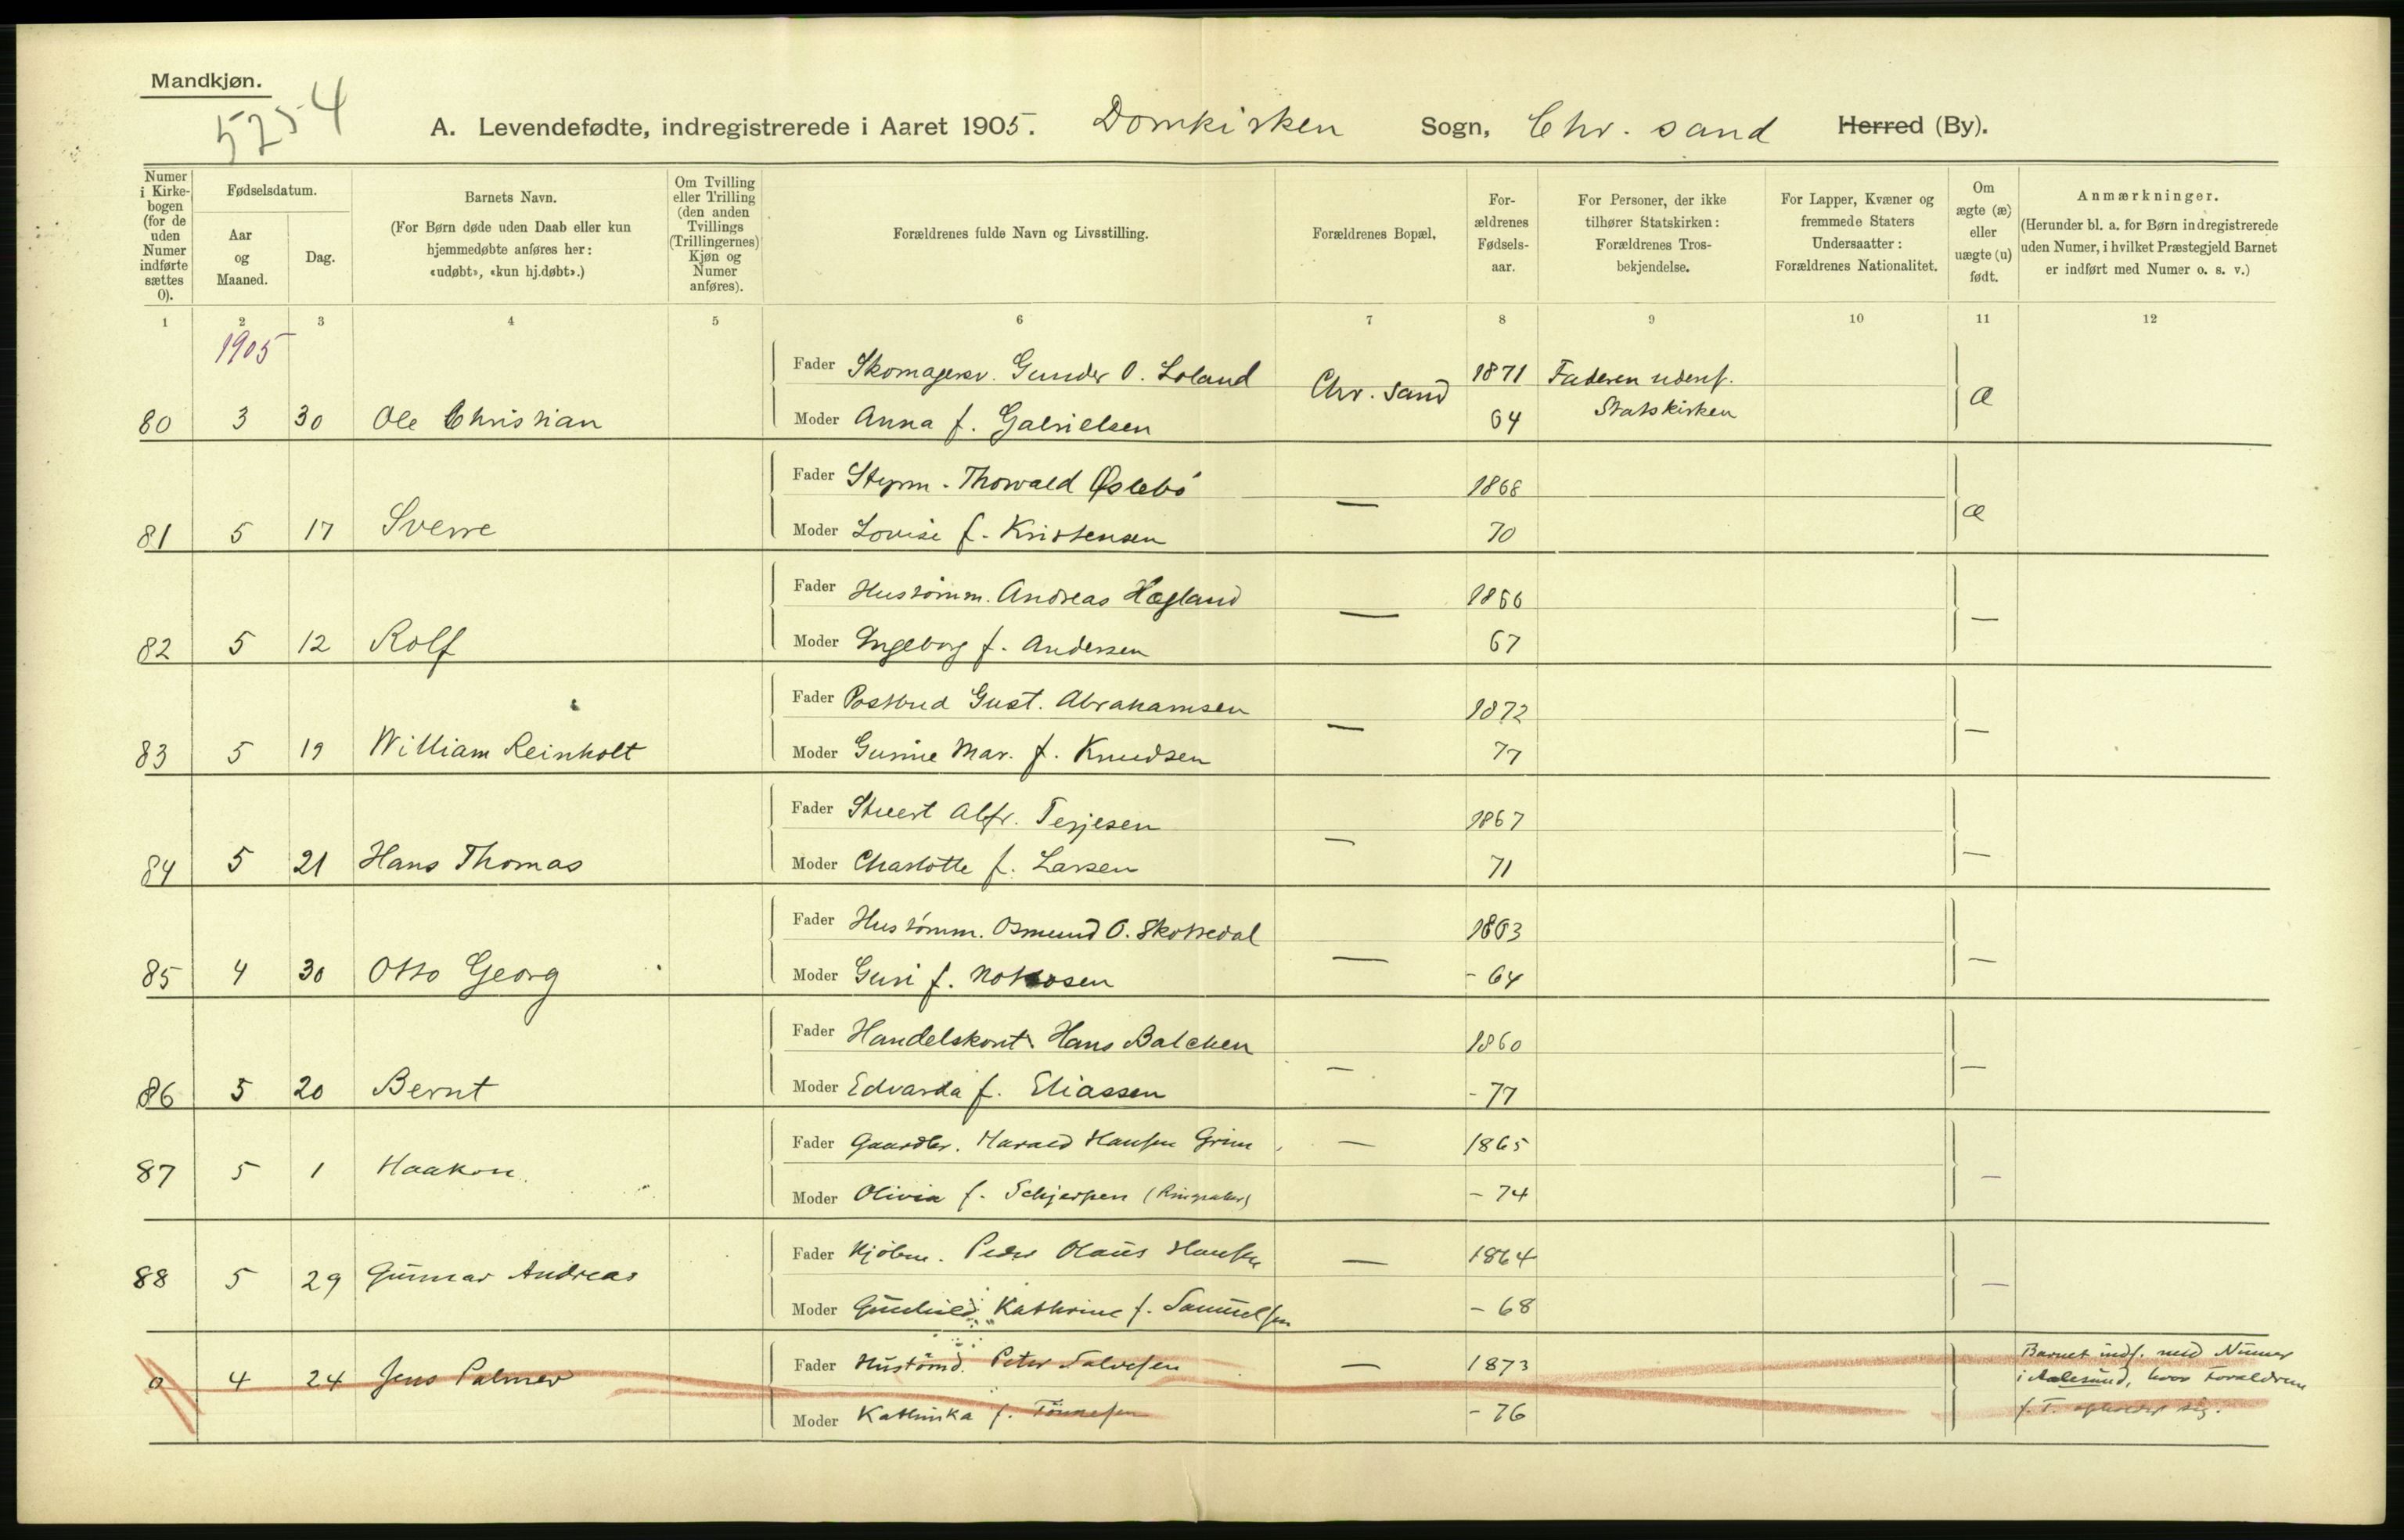 Mandkjøn.
5254
A. Levendefødte, indregistrerede i Aaret 1905. Domkirken Sogn, Chr. sand Herred (By).
Numer i Kirkebogen (for de uden Numer indførte sættes 0).
Fødselsdatum.
Aar og Maaned.
Dag.
Barnets Navn.
(For Børn døde uden Daab eller kun hjemmedøbte anføres her: «udøbt», «kun hj.døbt».)
Om Tvilling eller Trilling (den anden Tvillings (Trillingernes) Kjøn og Numer anføres).
Forældrenes fulde Navn og Livsstilling.
Forældrenes Bopæl,
Forældrenes Fødselsaar.
For Personer, der ikke tilhører Statskirken: Forældrenes Trosbekjendelse.
For Lapper, Kvæner og fremmede Staters Undersaatter: Forældrenes Nationalitet.
Om ægte (æ) eller uægte (u) født.
Anmærkninger.
(Herunder bl. a. for Børn indregistrerede uden Numer, i hvilket Præstegjeld Barnet er indført med Numer o. s. v.)
1 2 3 4 5 6 7 8 9 10 11 12
1905
Fader Skomagersv. Gunder O. Loland Chr. sand 1871 Faderen udenf.
80 3 30 Ole Christian Moder Anna f. Gabrielsen 64 Statskirken æ
Fader Styrm. Thorvald Øslebø — 1868
81 5 17 Sverre Moder Lovise f. Kristensen 70 æ
Fader Hustømm. Andreas Hægland — 1866
82 5 12 Rolf Moder Ingeborg f. Andersen 67 —
Fader Postbud Gust. Abrahamsen — 1872
83 5 19 William Reinholt Moder Gunine Mar. f. Knudsen 77 —
Fader Stuert Alfr. Terjesen — 1867
84 5 21 Hans Thomas Moder Charlotte f. Larsen 71 —
Fader Hustømm. Osmund O. Skottedal — 1863
85 4 30 Otto Georg Moder Guri f. - 64 —
Fader Handelskont. Hans Balchen — 1860
86 5 20 Bernt Moder Edvarda f. Eliassen - 77 —
Fader Gaardbr. Harald Hansen Grim — 1865
87 5 1 Haakon Moder Olivia f. Schjerpen - 74 —
Fader Kjøbm. Peder Olaus Hansen — 1864
88 5 29 Gunnar Andreas Moder Gunhild Kathrine f. Samuelsen - 68 —
Fader Hustømd. Peter Salvesen — 1873 Barnet indf. med Numer
0 4 24 Jens Palmer i Aalesund, hvor Forældrene
Moder Kathinka f. Tønnesen - 76 f. T. opholder sig.